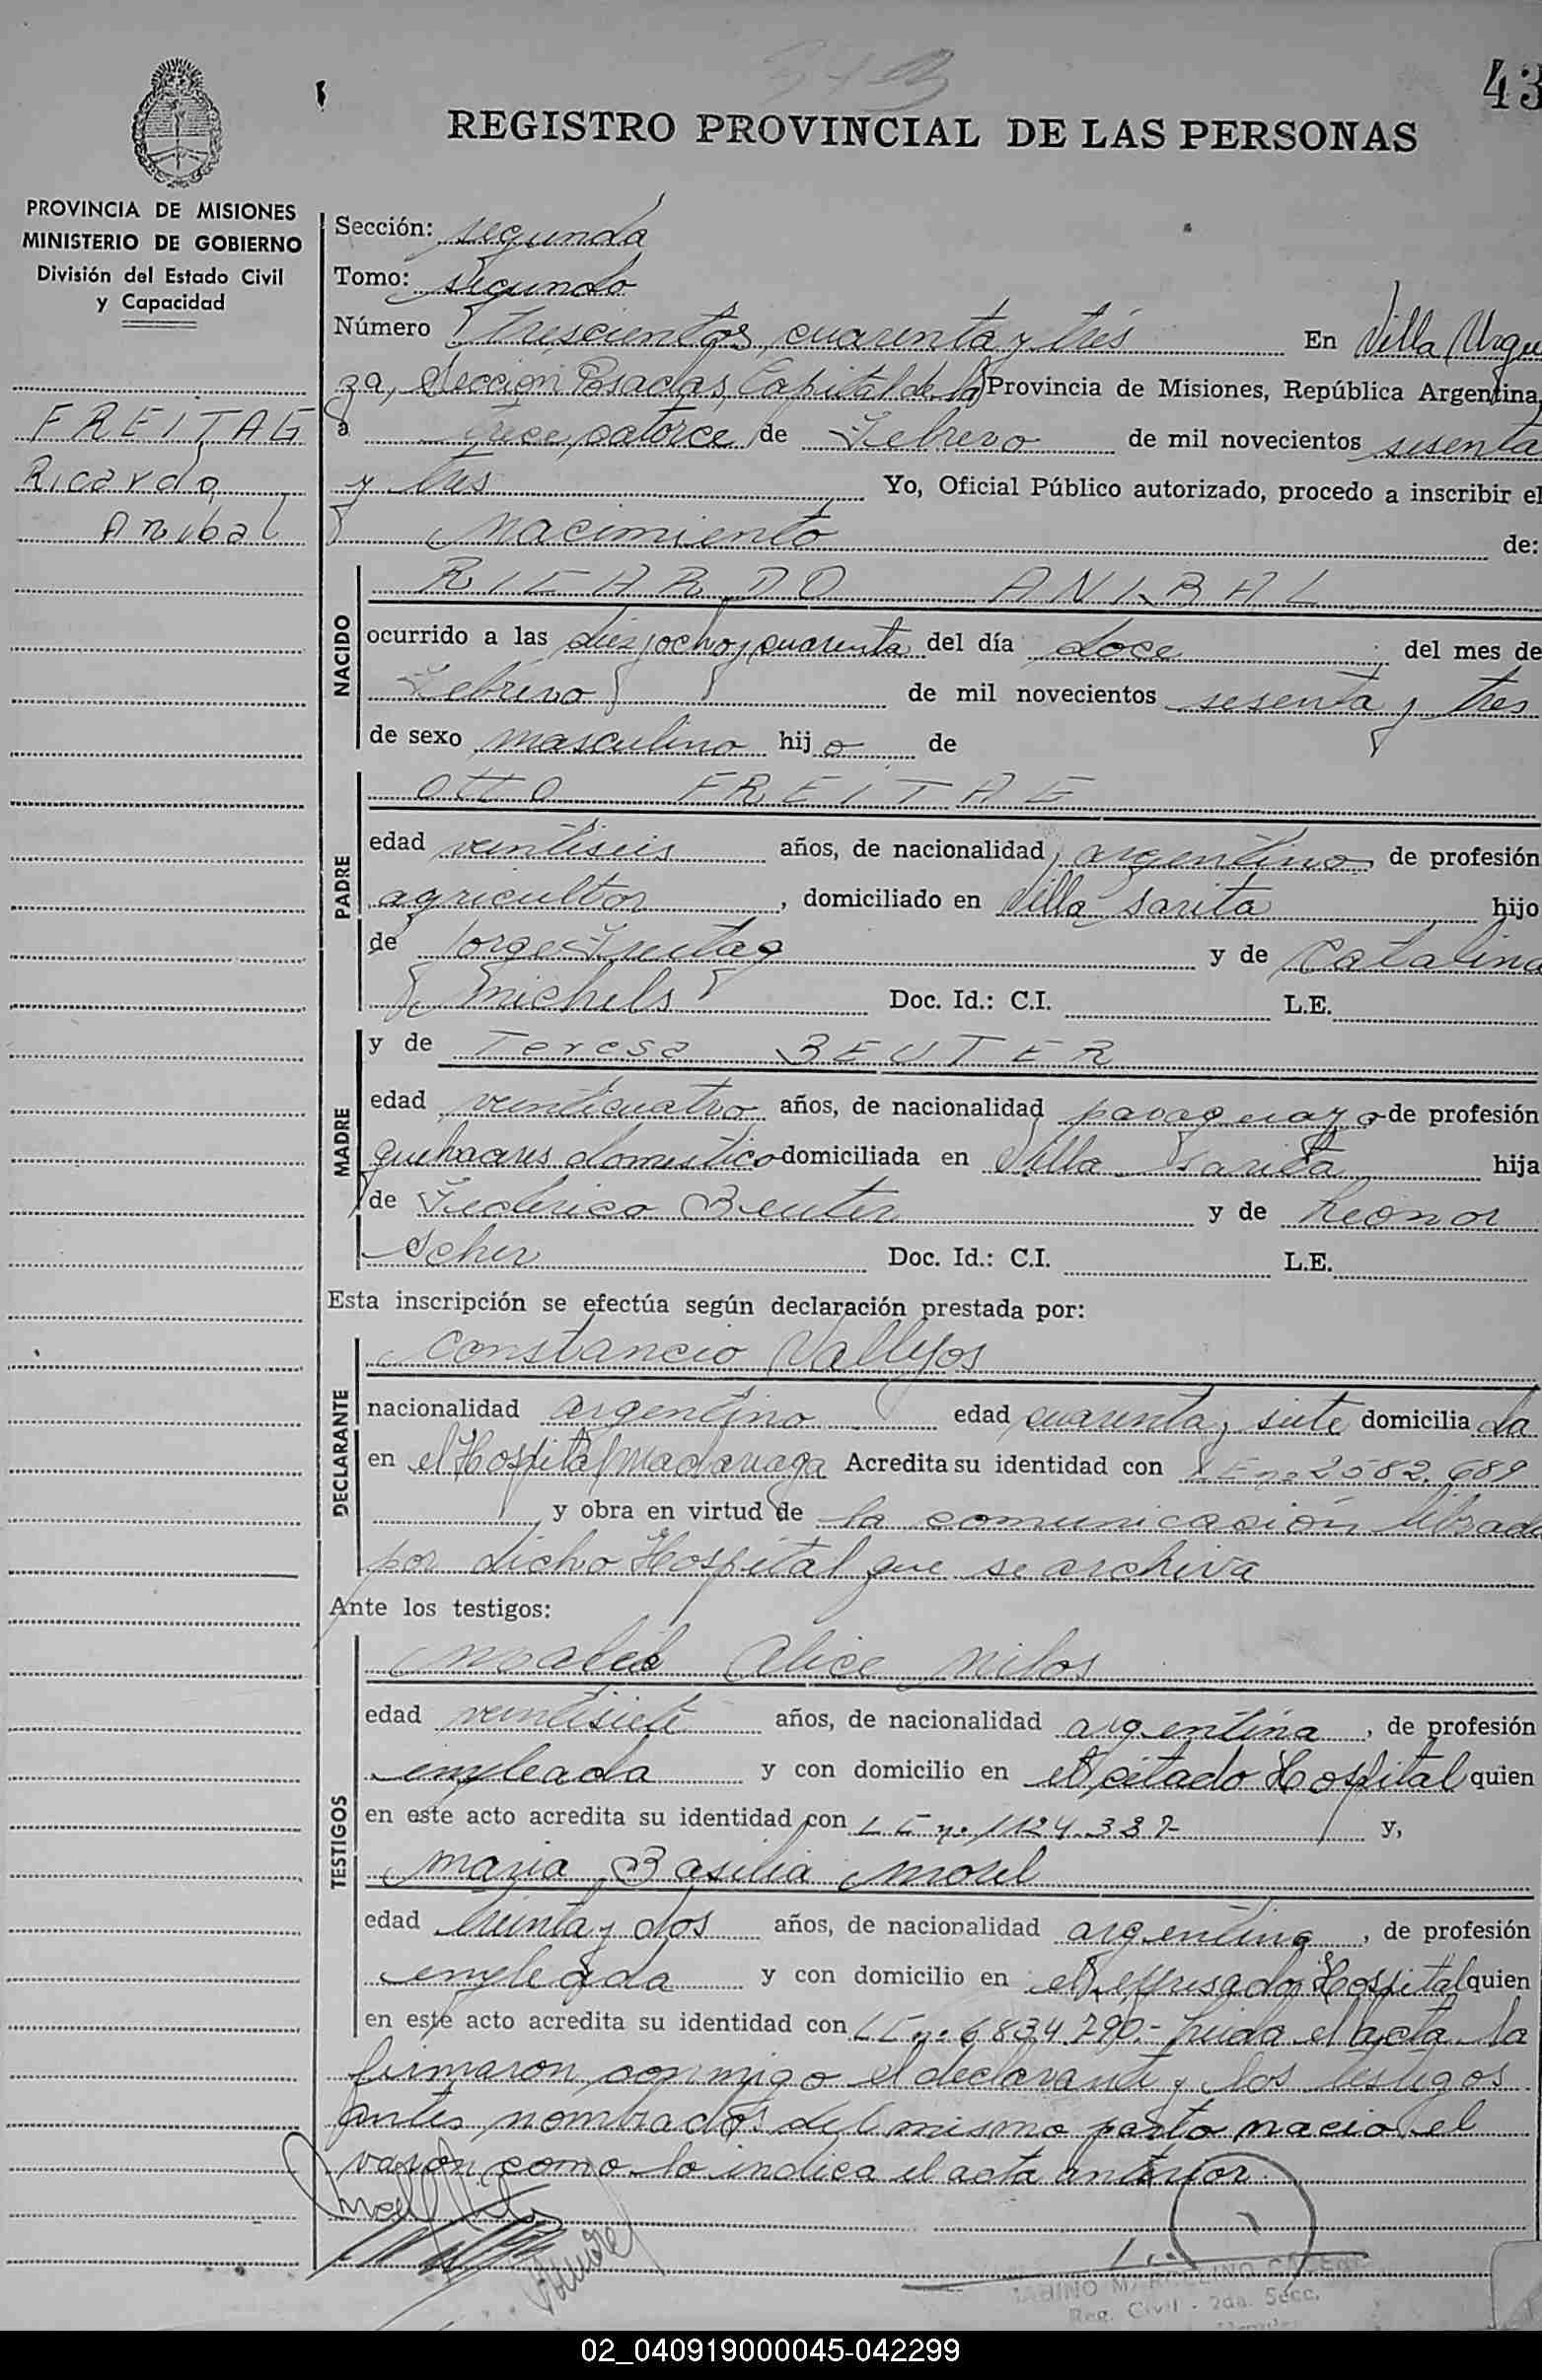 343
43
REGISTRO PROVINCIAL DE LAS PERSONAS
PROVINCIA DE MISIONES
MINISTERIO DE GOBIERNO
División del Estado Civil
y Capacidad
FREITAG
Ricardo
Anibal
Sección: segunda
Tomo: segundo
Número trescientos cuarenta y trés En Villa Urqui
za, Sección Posadas, Capital de la Provincia de Misiones, República Argentina,
a catorce de Febrero de mil novecientos sesenta
y tres Yo, Oficial Público autorizado, procedo a inscribir el
Nacimiento de:
NACIDO
RICARDO ANIBAL
ocurrido a las diesiocho y cuarenta del día doce del mes de
Febrero de mil novecientos sesenta y tres
de sexo masculino hijo de
PADRE
Otto FREITAG
edad veintiseis años, de nacionalidad argentino, de profesión
agricultor, domiciliado en Villa Sarita hijo
de Jorge Freitag y de Catalina
Michels Doc. Id.: C.I. L.E.
MADRE
y de Teresa BEUTER
edad veinticuatro años, de nacionalidad paraguaya de profesión
quehaceres domestico domiciliada en Villa Sarita hija
de Federico Beuter y de Leonor
Scher Doc. Id.: C.I. L.E.
Esta inscripción se efectúa según declaración prestada por:
DECLARANTE
Constancio Vallejos
nacionalidad argentino edad cuarenta y siete domicilia da
en el Hospital Madariaga Acredita su identidad con LE nº 2582.689
y obra en virtud de la comunicación librada
por dicho Hospital que se archiva
Ante los testigos:
TESTIGOS
Alice Milos
edad veintisiete años, de nacionalidad argentina, de profesión
empleada y con domicilio en el citado Hospital quien
en este acto acredita su identidad con LE nº 1124.337 y,
Maria Basilia Morel
edad treinta y dos años, de nacionalidad argentina, de profesión
empleada y con domicilio en el espresado Hospital quien
en este acto acredita su identidad con LE nº 6834.790.- Leida el acta la
firmaron conmigo el declarante y los testigos
antes nombrados del mismo parto nacio el
varón como lo indica el acta anterior.
Reg. Civil - 2da. Secc.
02_040919000045-042299